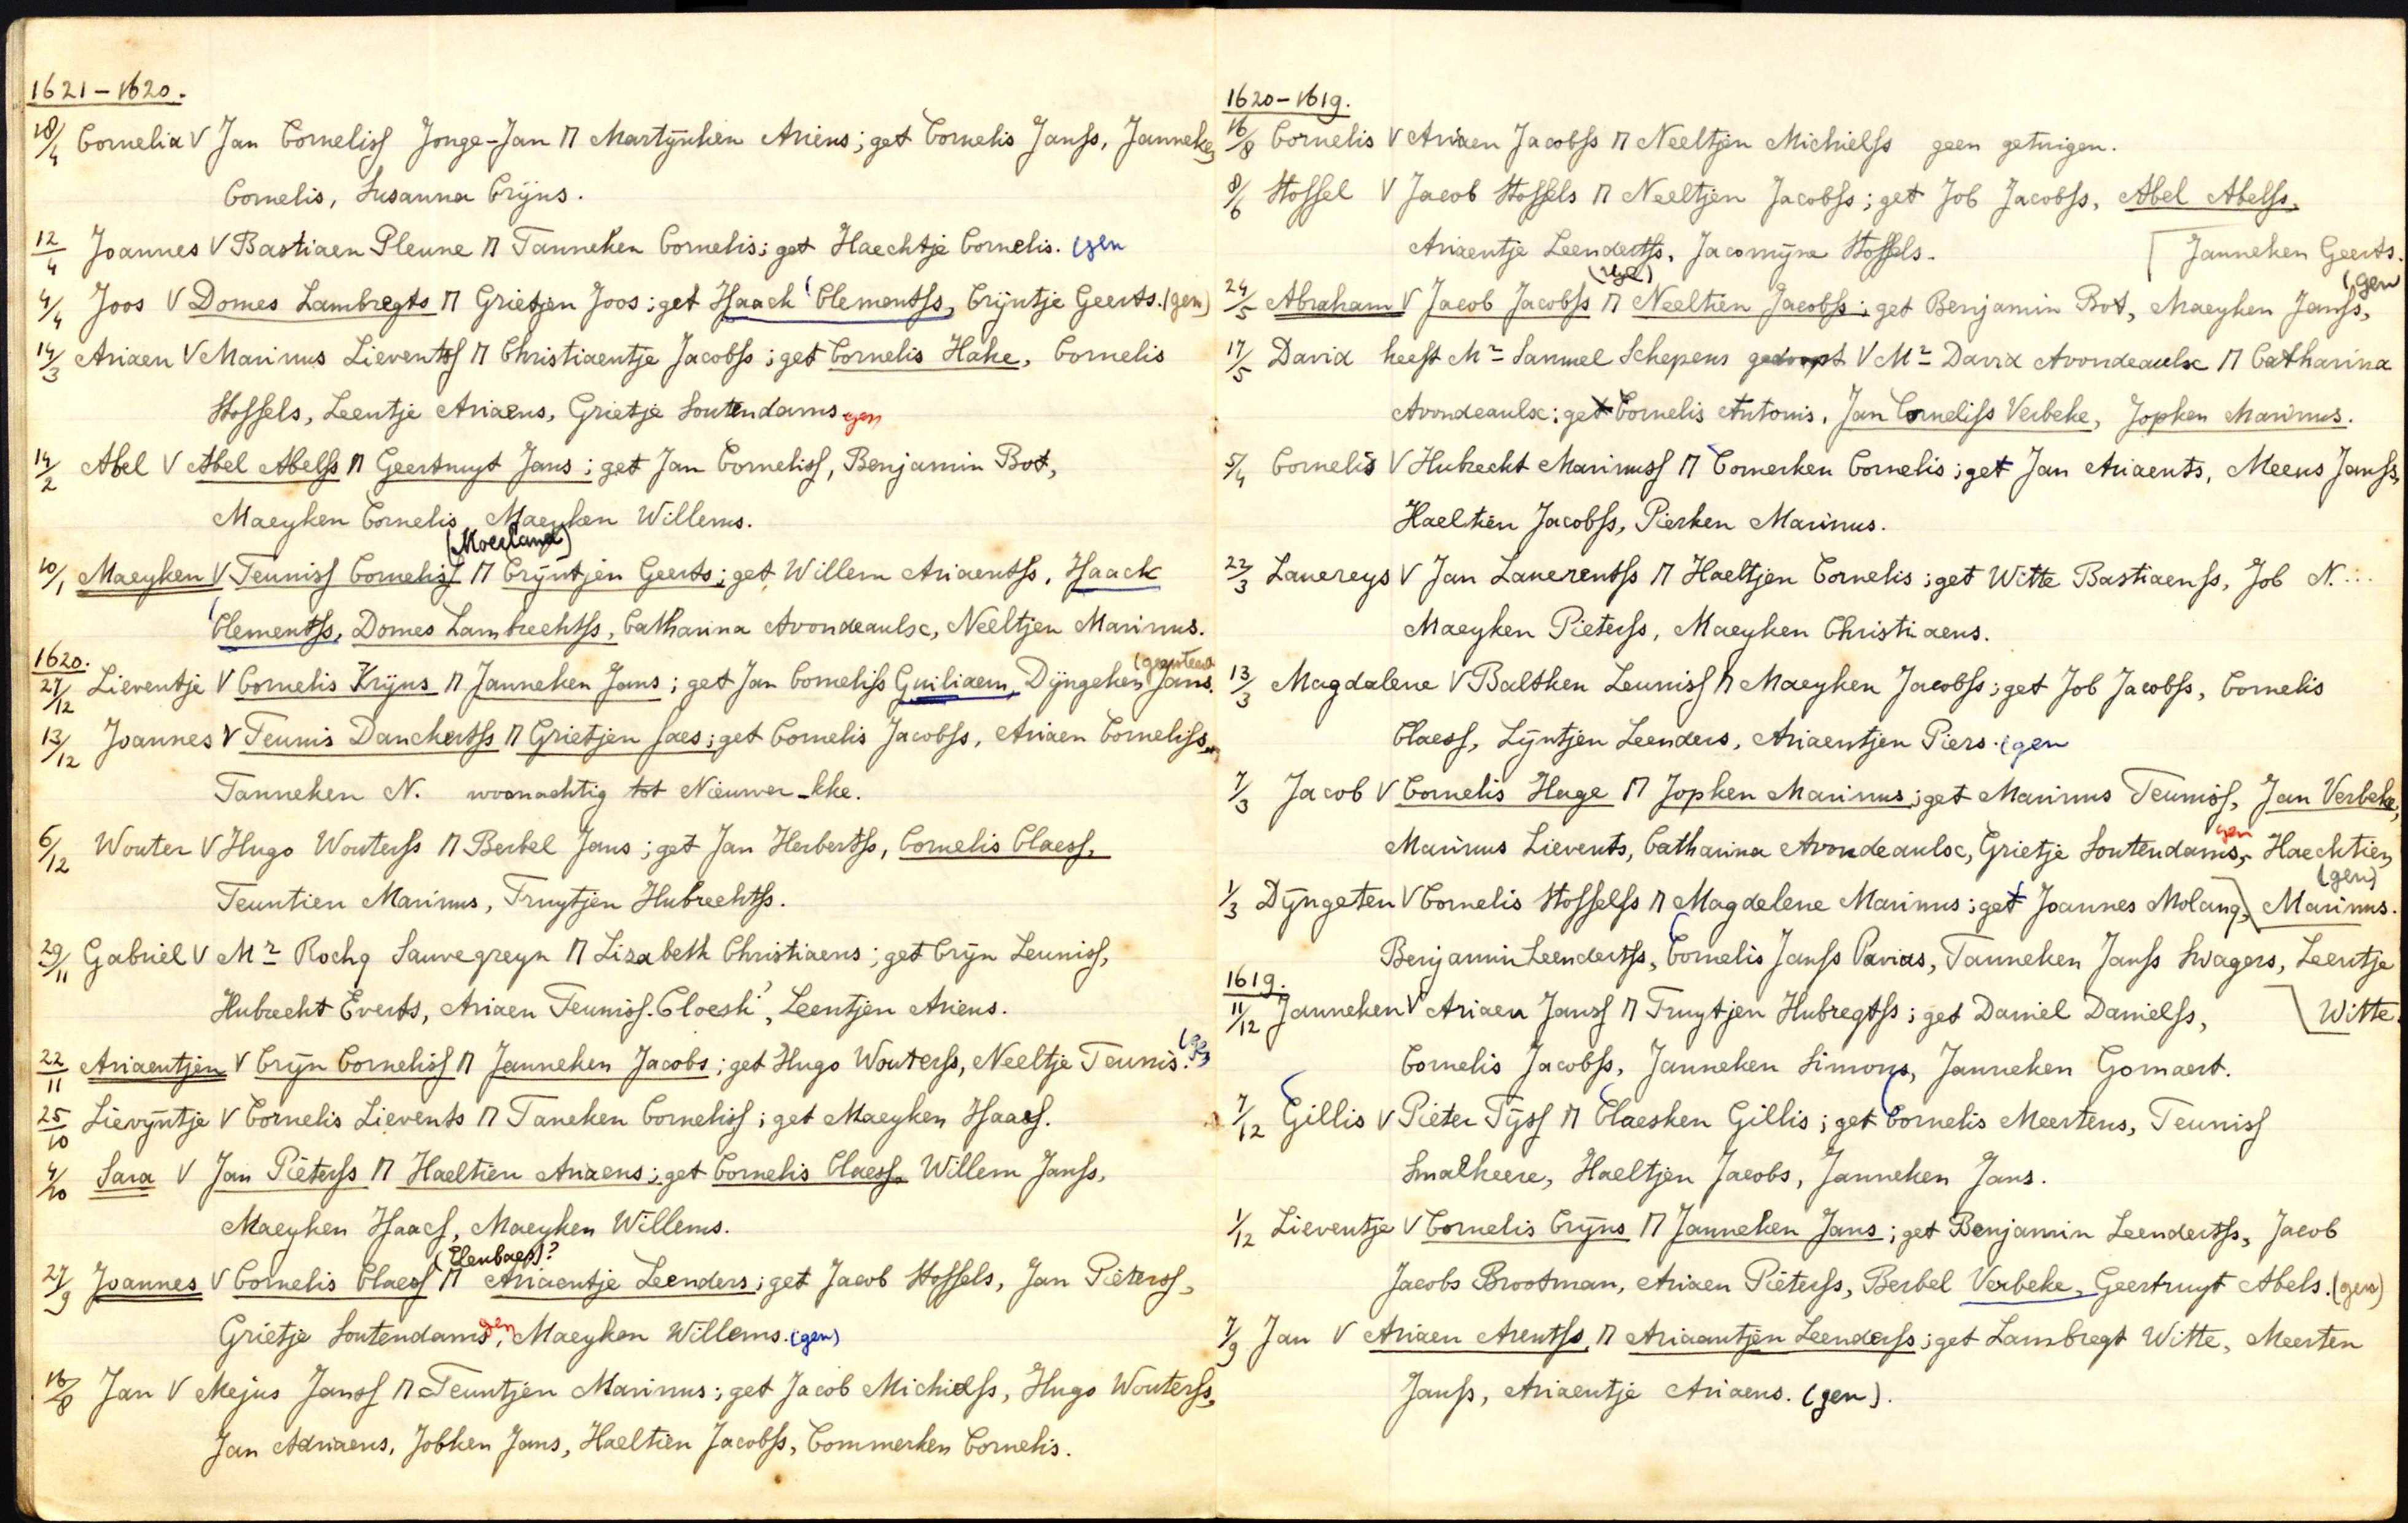 1621-1620.
18/4 Cornelia V Jan Corneliss Jonge-Jan M Martÿnken Ariens; get Cornelis Janss, Janneken
Cornelis, Susanna Crÿns.
12/4 Joannes V Bastiaen Pleune M Tanneken Cornelis; get Haechtje Cornelis. (gen
4/4 Joos V Domes Lambregts M Grietjen Joos; get Isaack Clementss, Crÿntje Geerts. (gen)
14/3 Ariaen V Marinus Lieventss M Christiaentje Jacobss; get Cornelis Hake, Cornelis
Stoffels, Leentje Ariaens, Grietje Soutendams gen
14/2 Abel V Abel Abelss M Geertruyt Jans; get Jan Corneliss, Benjamin Bot,
Maeyken Cornelis, Maeyken Willems.
(Moeland)
10/1 Maeyken V Teuniss Corneliss M Crÿntjen Geerts; get Willem Ariaentss, Isaack
Clementss, Domes Lambrechtss, Catharina Avondeaulse, Neeltjen Marinus.
1620.
27/12 Lieventje V Cornelis Krÿns M Janneken Jans; get Jan Corneliss Guiliaem, Dÿngeken Jans.
13/12 Joannes V Teunis Danckertss M Grietjen Saes; get Cornelis Jacobss, Ariaen Corneliss
Tanneken N. woonachtig tot Nieuwer-kke.
6/12 Wouter V Hugo Wouterss M Berbel Jans; get Jan Herbertss, Cornelis Claess,
Teuntien Marinus, Truytjen Hubrechtss.
29/11 Gabriel V Mr Rochg Sauvegreyn M Lizabeth Christiaens; get Crÿn Leuniss,
Hubrecht Everts, Ariaen Teuniss. Cloesk?, Leentjen Ariens.
22/11 Ariaentjen V Crÿn Corneliss M Janneken Jacobs; get Hugo Wouterss, Neeltje Teunis.
25/10 Lievÿntje V Cornelis Lievents M Taneken Corneliss; get Maeyken Isaacs.
4/10 Sara V Jan Pieterss M Haeltien Ariaens; get Cornelis Claess, Willem Janss,
Maeyken Isaacs, Maeyken Willems.
(Elenbaes)?
27/9 Joannes V Cornelis Claess M Ariaentje Leenders; get Jacob Stoffels, Jan Pieterss,
Grietje Soutendams gen, Maeyken Willems. (gen)
16/8 Jan V Mejus Janss M Teuntjen Marinus; get Jacob Michielss, Hugo Wouterss,
Jan Adriaens, Jobken Jans, Haeltien Jacobss, Commerken Cornelis.
1620-1619.
16/8 Cornelis V Ariaen Jacobss M Neeltjen Michielss geen getuigen.
8/6 Stoffel V Jacob Stoffels M Neeltjen Jacobss; get Job Jacobss, Abel Abelss,
Ariaentje Leendertss, Jacomÿne Stoffels. Janneken Geerts.
24/5 Abraham V Jacob Jacobss M Neeltien Jacobss; get Benjamin Bot, Maeyken Janss, (gen
17/5 David heeft Mr Samuel Schepens gedoopt V Mr David Avondeaulse M Catharina
Avondeaulse; get Cornelis Antonis, Jan Corneliss Verbeke, Jopken Marinus.
5/4 Cornelis V Hubrecht Marinuss M Comerken Cornelis; get Jan Ariaents, Meeus Janss,
Haeltien Jacobss, Pierken Marinus.
22/3 Lauereys V Jan Lauerentss M Haeltjen Cornelis; get Witte Bastiaenss, Job N...
Maeyken Pieterss, Maeyken Christiaens.
13/3 Magdalene V Baltken Leuniss M Maeyken Jacobss; get Job Jacobss, Cornelis
Claess, Lÿntjen Leenders, Ariaentjen Piers. (gen
7/3 Jacob V Cornelis Huge M Jopken Marinus; get Marinus Teuniss, Jan Verbeke,
Marinus Lievents, Catharina Avondeaulse, Grietje Soutendams, gen Haechtien
(gen)
1/3 Dÿngeten V Cornelis Stoffelss M Magdelene Marinus; get Joannes Molang, Marinus.
Benjamin Leendertss, Cornelis Janss Pavias, Tanneken Janss Swagers, Leentje
Witte.
1619.
11/12 Janneken V Ariaen Janss M Truytjen Hubregtss; get Daniel Danielss,
Cornelis Jacobss, Janneken Simons, Janneken Gomaert.
7/12 Gillis V Pieter Tÿss M Claesken Gillis; get Cornelis Meertens, Teuniss
Smalheere, Haeltjen Jacobs, Janneken Jans.
1/12 Lieventje V Cornelis Crÿns M Janneken Jans; get Benjamin Leendertss, Jacob
Jacobs Brootman, Ariaen Pieterss, Berbel Verbeke, Geertruyt Abels. (gen)
7/9 Jan V Ariaen Arentss, M Ariaantjen Leenderss; get Lambregt Witte, Meerten
Janss, Ariaentje Ariaens. (gen).